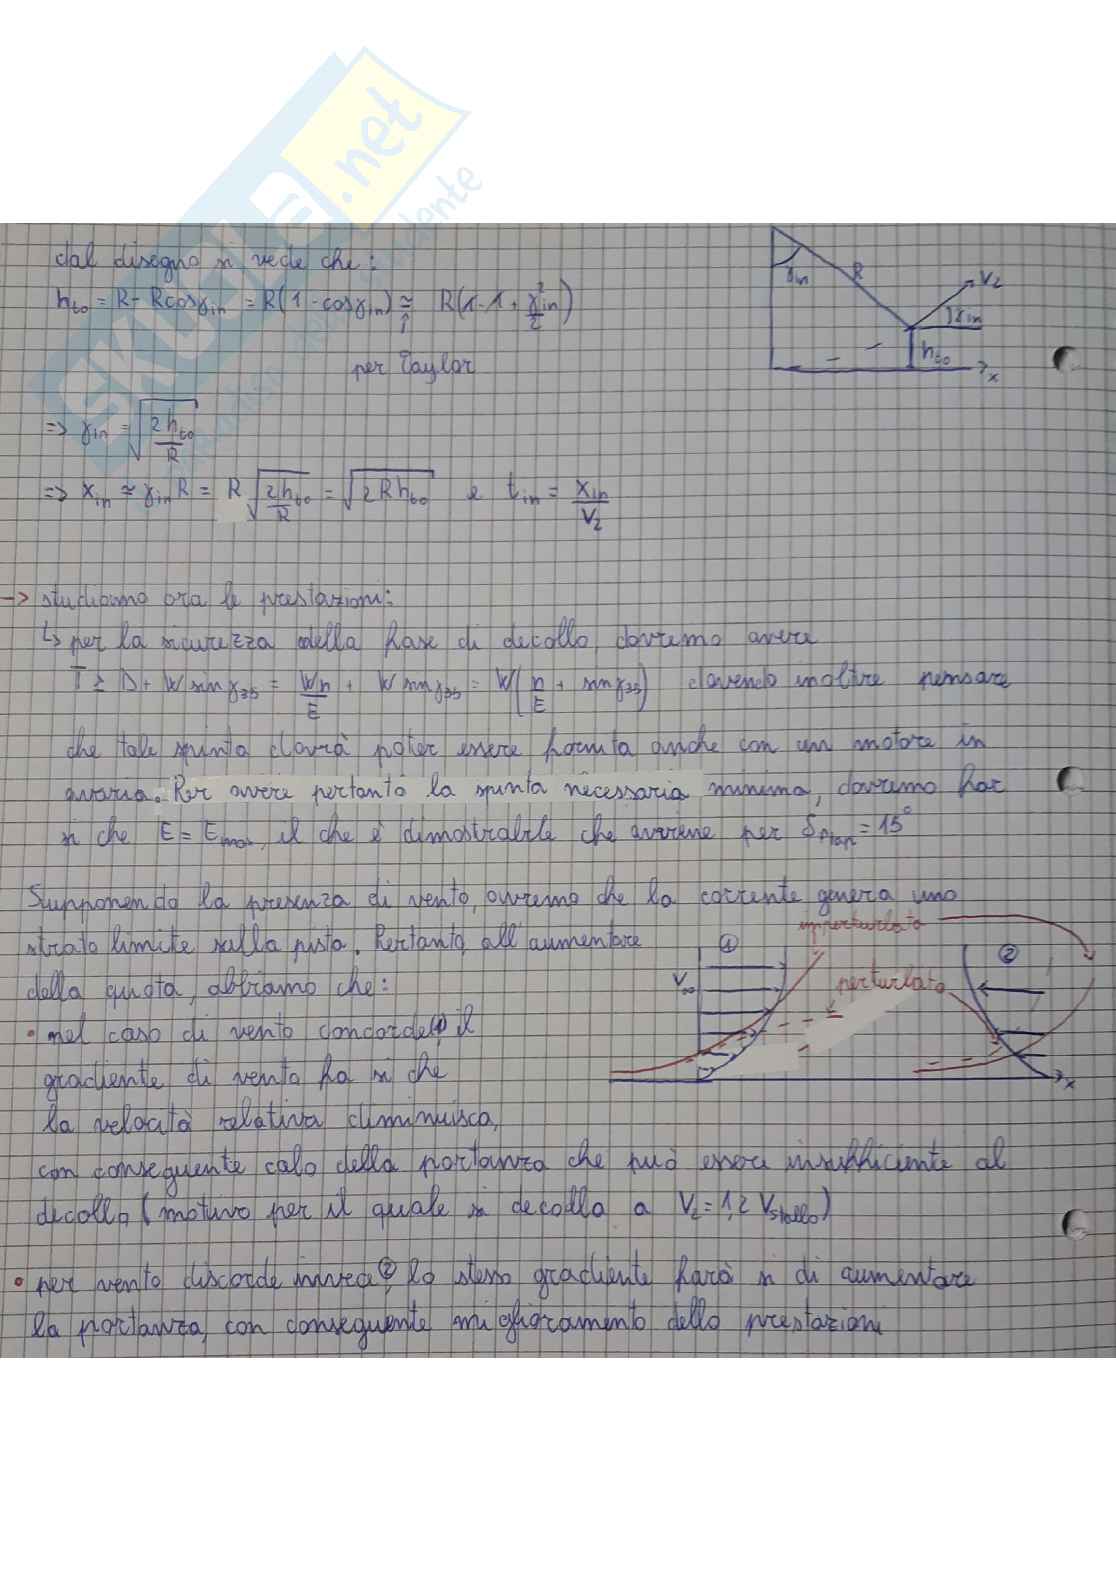 SKUOLA.net
dal disegno si vede che:
h_to = R - Rcosγ_in = R(1 - cosγ_in) ≅ R(1 - 1 + γ²_in/2)
↑
per Taylor
γ_in
R
V_2
γ_in
h_to
x
=> γ_in = √(2h_to/R)
=> x_in ≅ γ_in R = R √(2h_to/R) = √(2Rh_to) e t_in = x_in/V_2
-> studiamo ora le prestazioni:
↳ per la sicurezza della fase di decollo, dovremo avere
T ≥ D + W sinγ_35 = Wn/E + W sinγ_35 = W(n/E + sinγ_35) dovendo inoltre pensare
che tale spinta dovrà poter essere fornita anche con un motore in
avaria. Per avere pertanto la spinta necessaria minima, dovremo far
sì che E = E_max, il che è dimostrabile che avviene per δ_flap = 15°
Supponendo la presenza di vento, avremo che la corrente genera uno
strato limite sulla pista. Pertanto, all'aumentare
della quota, abbiamo che:
• nel caso di vento concorde ① il
gradiente di vento fa sì che
la velocità relativa diminuisca,
imperturbato
①
②
V_∞
perturbato
x
con conseguente calo della portanza che può essere insufficiente al
decollo (motivo per il quale si decolla a V_2 = 1,2 V_stallo)
• per vento discorde invece ②, lo stesso gradiente farà sì di aumentare
la portanza, con conseguente miglioramento dello prestazioni